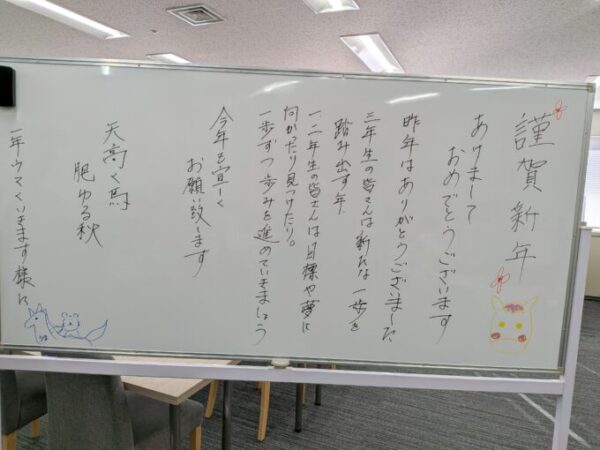 謹賀新年
あけまして
おめでとうございます
昨年はありがとうございました
三年生の皆さんは新たな一歩を
踏み出す年
一、二年生の皆さんは目標や夢に
向かったり見つけたり。
一歩ずつ歩みを進めていきましょう
今年も宜しく
お願い致します
天高く馬
肥ゆる秋
一年ウマくいきます様に